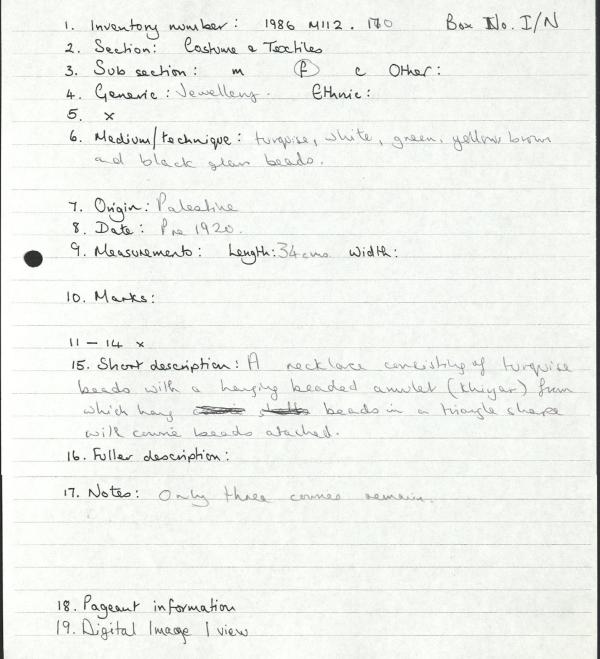 1. Inventory number: 1986 M112. 170 Box No. I/N
2. Section: Costume & Textiles
3. Sub section: m f c Other:
4. Generic: Jewellery. Ethnic:
5. x
6. Medium/technique: turquise, white, green, yellow brown
and black glass beads.
7. Origin: Palestine
8. Date: Pre 1920.
9. Measurements: Length: 34cms width:
10. Marks:
11 – 14 x
15. Short description: A necklace consisting of turquise
beads with a hanging beaded amulet (Khiyar) from
which hang beads in a triangle shape
with cowrie beads atached.
16. Fuller description:
17. Notes: Only three cowries remain.
18. Pageant information
19. Digital Image 1 view